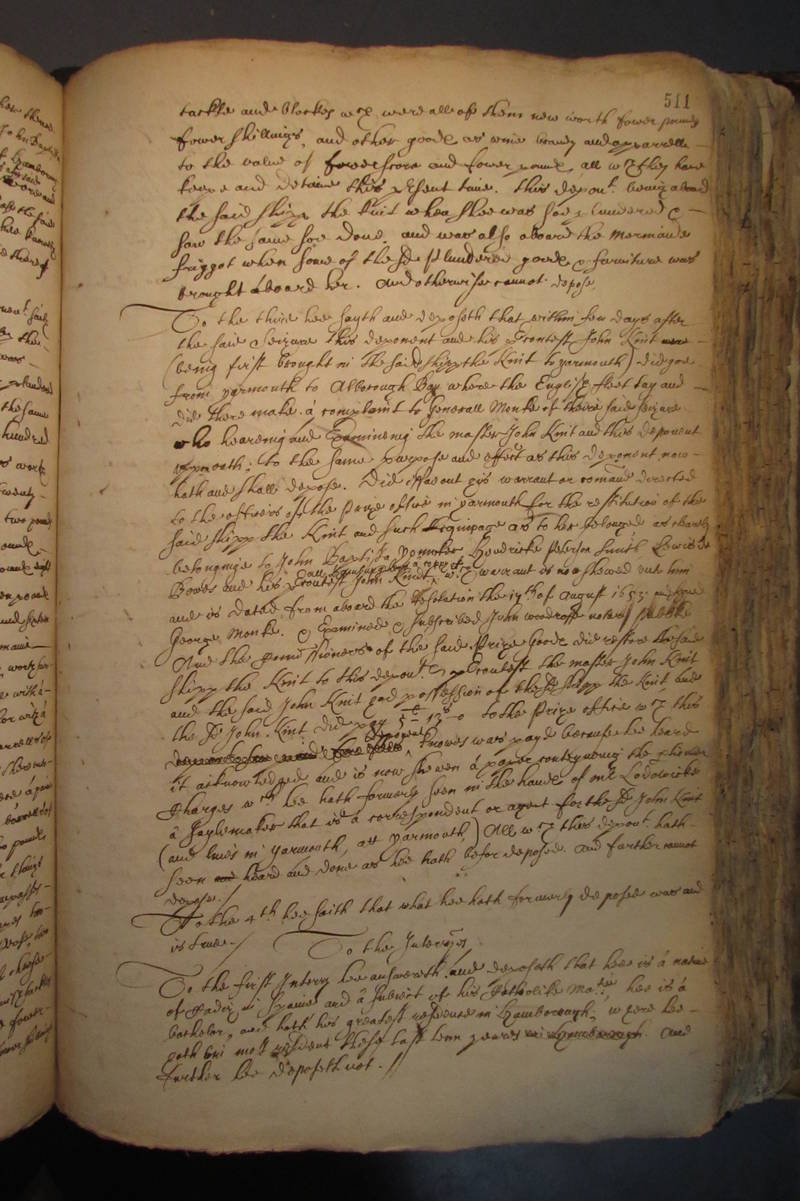 511
tackle and blockes wch were all of them new worth fower pounds
fower shillings, and other goods as wine brandy and apparrell
to the value of fowerscore and fower pounds, all wch they have
keepe and detaine this present time. This depont. being aboard
the said shipp the Knit when shee was soe plundered &
saw the same soe done, and was also aboard the Mermaide
friggot when some of the sd plundered goods & furniture was
brought aboard her. And otherwise cannot depose
To the third hee sayth and deposeth that within few days after
the said seizure this deponent and his Contest John Knit were
(being first brought in the said shipp the Knit to yarmouth) did goe
from yarmouth to Alborough Bay where the English fleet lay and
did there make a complaint to Generall Monke of their said seizure
who hearing and Examining the master John Knit and this deponent
upon oath, to the same purpose and effect as this deponent now
hath and shall depose. Did issue out his warrant or comand directed
to the officers of the Prize office in yarmouth for the restitution of the
said shipp the Knit and such Equipage as to her belonged as clearly
belonging to John Baptista Hendricke Peterson Smith Lewis de
Boves and his Contest John Knit wch warrant is now shewed unto him
and is dated from aboard the Resolution the 19th of August 1653
George Monke. & Examined & subscribed John Woodroffe notary publike
And the Commissioners of the said Prize Goods did restore the said
shipp the Knit to this deponts Contest the master John Knit
and the said John Knit had possession of the sd shipp the Knit, and
the sd John Knit did pay 5 13 0 to the Prize office wch this
deponent knowes was payd because hee heard
it acknowledged and is now shewen a paper contayning the
Charges wch hee hath formerly seen in the hands of mr Lodowicke
a Saylemaker that is a correspondent or agent for the sd John Knit
(and lives in yarmouth, att yarmouth) All wch this depont. hath
seen heard and done as hee hath before deposed. And further cannot
depose./
To the 4th hee saith that what hee hath formerly deposed was and
is true./ To the Interries
To the first Interry hee answereth and deposeth that hee is a native
of Cadiz in Spaine and a subject of his Catholike Matie, hee is a
batchelor, and hath his greatest residence in Hamborough, where hee
hath bin most resident these last tenn yeares in Hamborough. And
further hee deposeth not. //